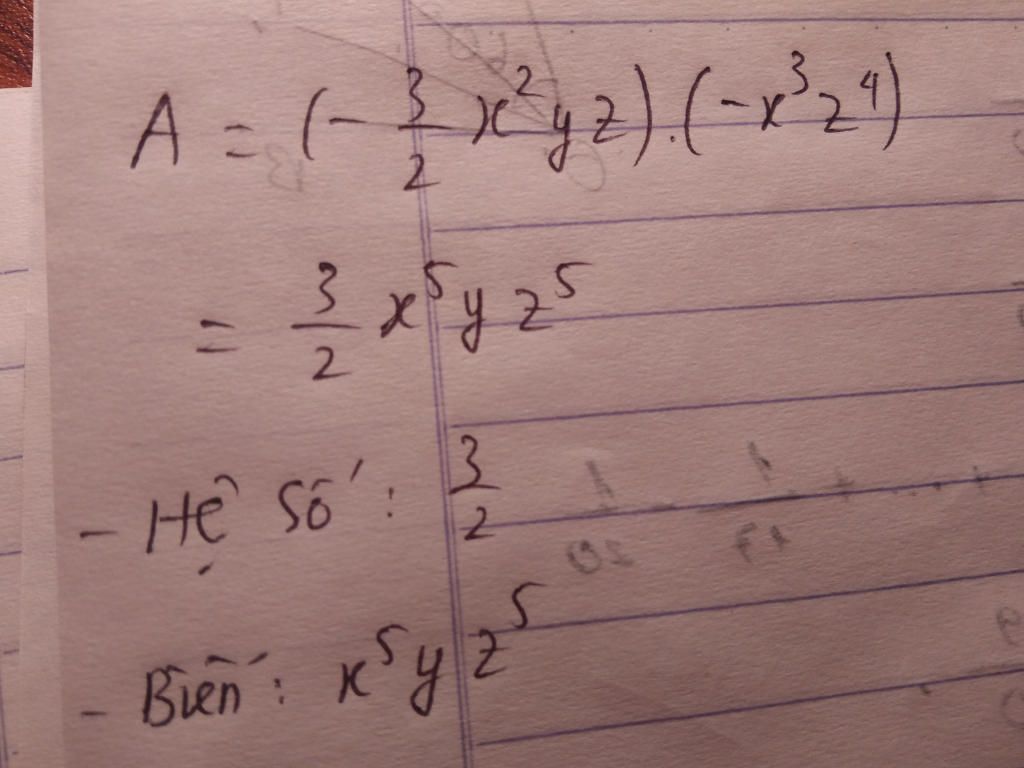 A = (-3/2 x²yz).(-x³z⁴)
= 3/2 x⁵yz⁵
- Hệ Số: 3/2
- Biến: x⁵yz⁵